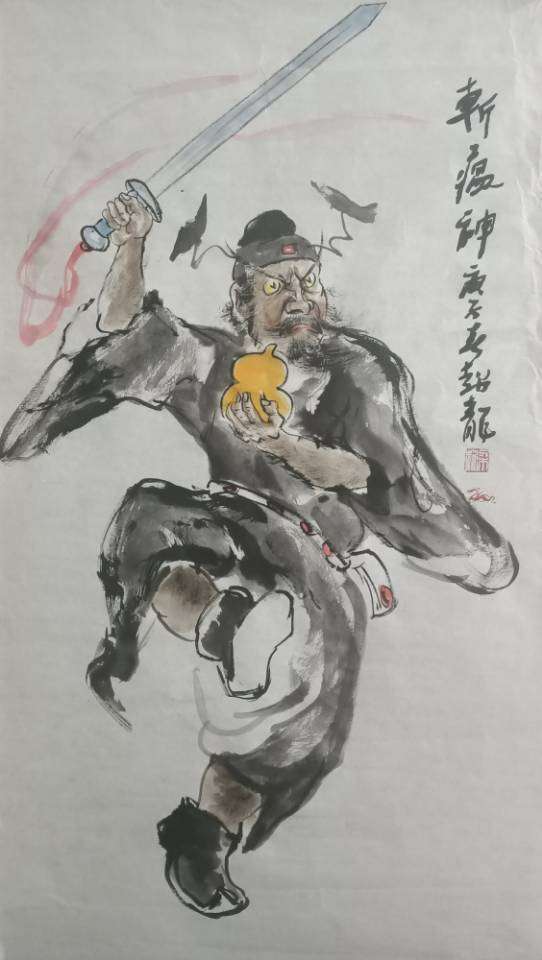 斬瘟神 庚子春 龍